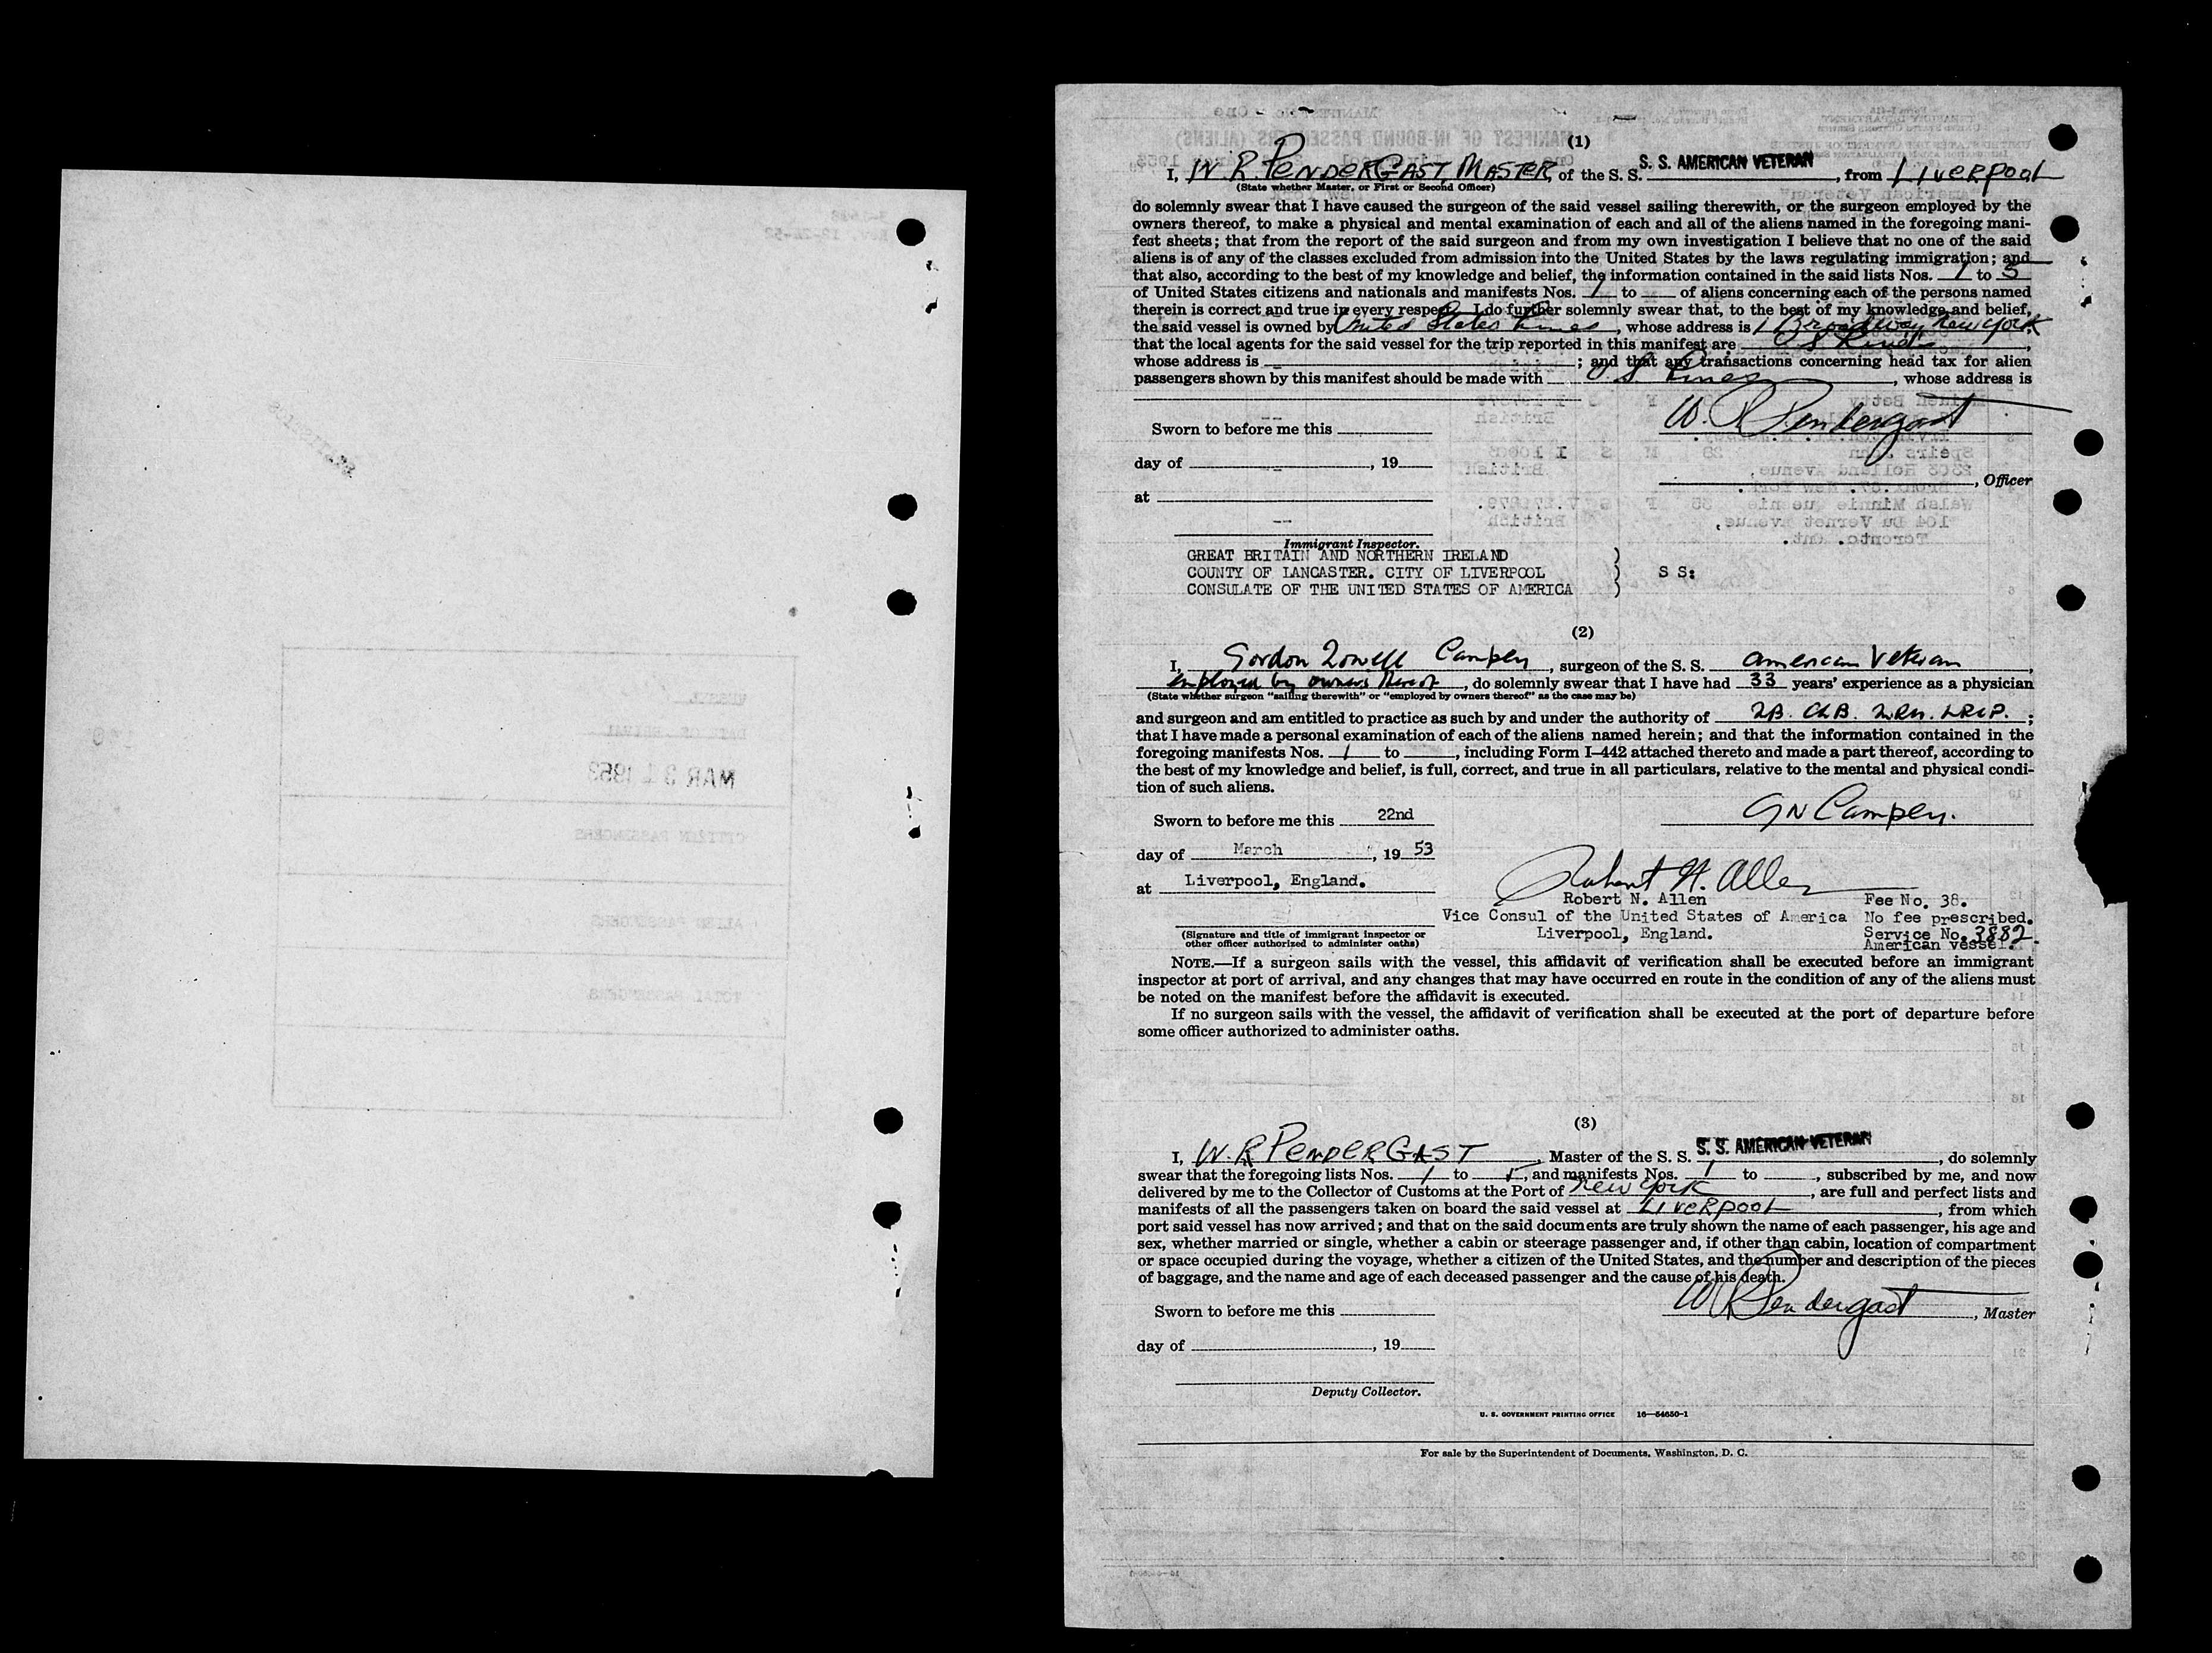 (1)
I, W. R. PENDERGAST, MASTER, of the S. S. S. S. AMERICAN VETERAN, from LIVERPOOL
(State whether Master, or First or Second Officer)
do solemnly swear that I have caused the surgeon of the said vessel sailing therewith, or the surgeon employed by the
owners thereof, to make a physical and mental examination of each and all of the aliens named in the foregoing mani-
fest sheets; that from the report of the said surgeon and from my own investigation I believe that no one of the said
aliens is of any of the classes excluded from admission into the United States by the laws regulating immigration; and
that also, according to the best of my knowledge and belief, the information contained in the said lists Nos. 1 to 5
of United States citizens and nationals and manifests Nos. 1 to of aliens concerning each of the persons named
therein is correct and true in every respect. I do further solemnly swear that, to the best of my knowledge and belief,
the said vessel is owned by United States Lines, whose address is 1 Broadway New York
that the local agents for the said vessel for the trip reported in this manifest are U S Lines,
whose address is ; and that any transactions concerning head tax for alien
passengers shown by this manifest should be made with U. S. Lines, whose address is
W. R. Pendergast
Sworn to before me this
day of , 19
, Officer
at
Immigrant Inspector.
GREAT BRITAIN AND NORTHERN IRELAND )
COUNTY OF LANCASTER. CITY OF LIVERPOOL ) S S:
CONSULATE OF THE UNITED STATES OF AMERICA )
(2)
I, Gordon Campen, surgeon of the S. S. American Veteran,
employed by owners thereof, do solemnly swear that I have had 33 years' experience as a physician
(State whether surgeon "sailing therewith" or "employed by owners thereof" as the case may be)
and surgeon and am entitled to practice as such by and under the authority of Ch.B. ;
that I have made a personal examination of each of the aliens named herein; and that the information contained in the
foregoing manifests Nos. 1 to , including Form I-442 attached thereto and made a part thereof, according to
the best of my knowledge and belief, is full, correct, and true in all particulars, relative to the mental and physical condi-
tion of such aliens.
Sworn to before me this 22nd
GN Campen.
day of March, 19 53
at Liverpool, England.
Robert N. Allen
Robert N. Allen Fee No. 38.
Vice Consul of the United States of America No fee prescribed.
Liverpool, England. Service No. 3882.
American vessel.
(Signature and title of immigrant inspector or
other officer authorized to administer oaths)
NOTE.—If a surgeon sails with the vessel, this affidavit of verification shall be executed before an immigrant
inspector at port of arrival, and any changes that may have occurred en route in the condition of any of the aliens must
be noted on the manifest before the affidavit is executed.
If no surgeon sails with the vessel, the affidavit of verification shall be executed at the port of departure before
some officer authorized to administer oaths.
(3)
I, W. R PENDERGAST, Master of the S. S. S. S. AMERICAN VETERAN, do solemnly
swear that the foregoing lists Nos. 1 to 5, and manifests Nos. 1 to , subscribed by me, and now
delivered by me to the Collector of Customs at the Port of New York, are full and perfect lists and
manifests of all the passengers taken on board the said vessel at LIVERPOOL, from which
port said vessel has now arrived; and that on the said documents are truly shown the name of each passenger, his age and
sex, whether married or single, whether a cabin or steerage passenger and, if other than cabin, location of compartment
or space occupied during the voyage, whether a citizen of the United States, and the number and description of the pieces
of baggage, and the name and age of each deceased passenger and the cause of his death.
W R Pendergast, Master
Sworn to before me this
day of , 19
Deputy Collector.
U. S. GOVERNMENT PRINTING OFFICE 16—54650-1
For sale by the Superintendent of Documents, Washington, D. C.
VESSEL
DATE OF ARRIVAL
MAR 31 1953
CITIZEN PASSENGERS
ALIEN PASSENGERS
TOTAL PASSENGERS